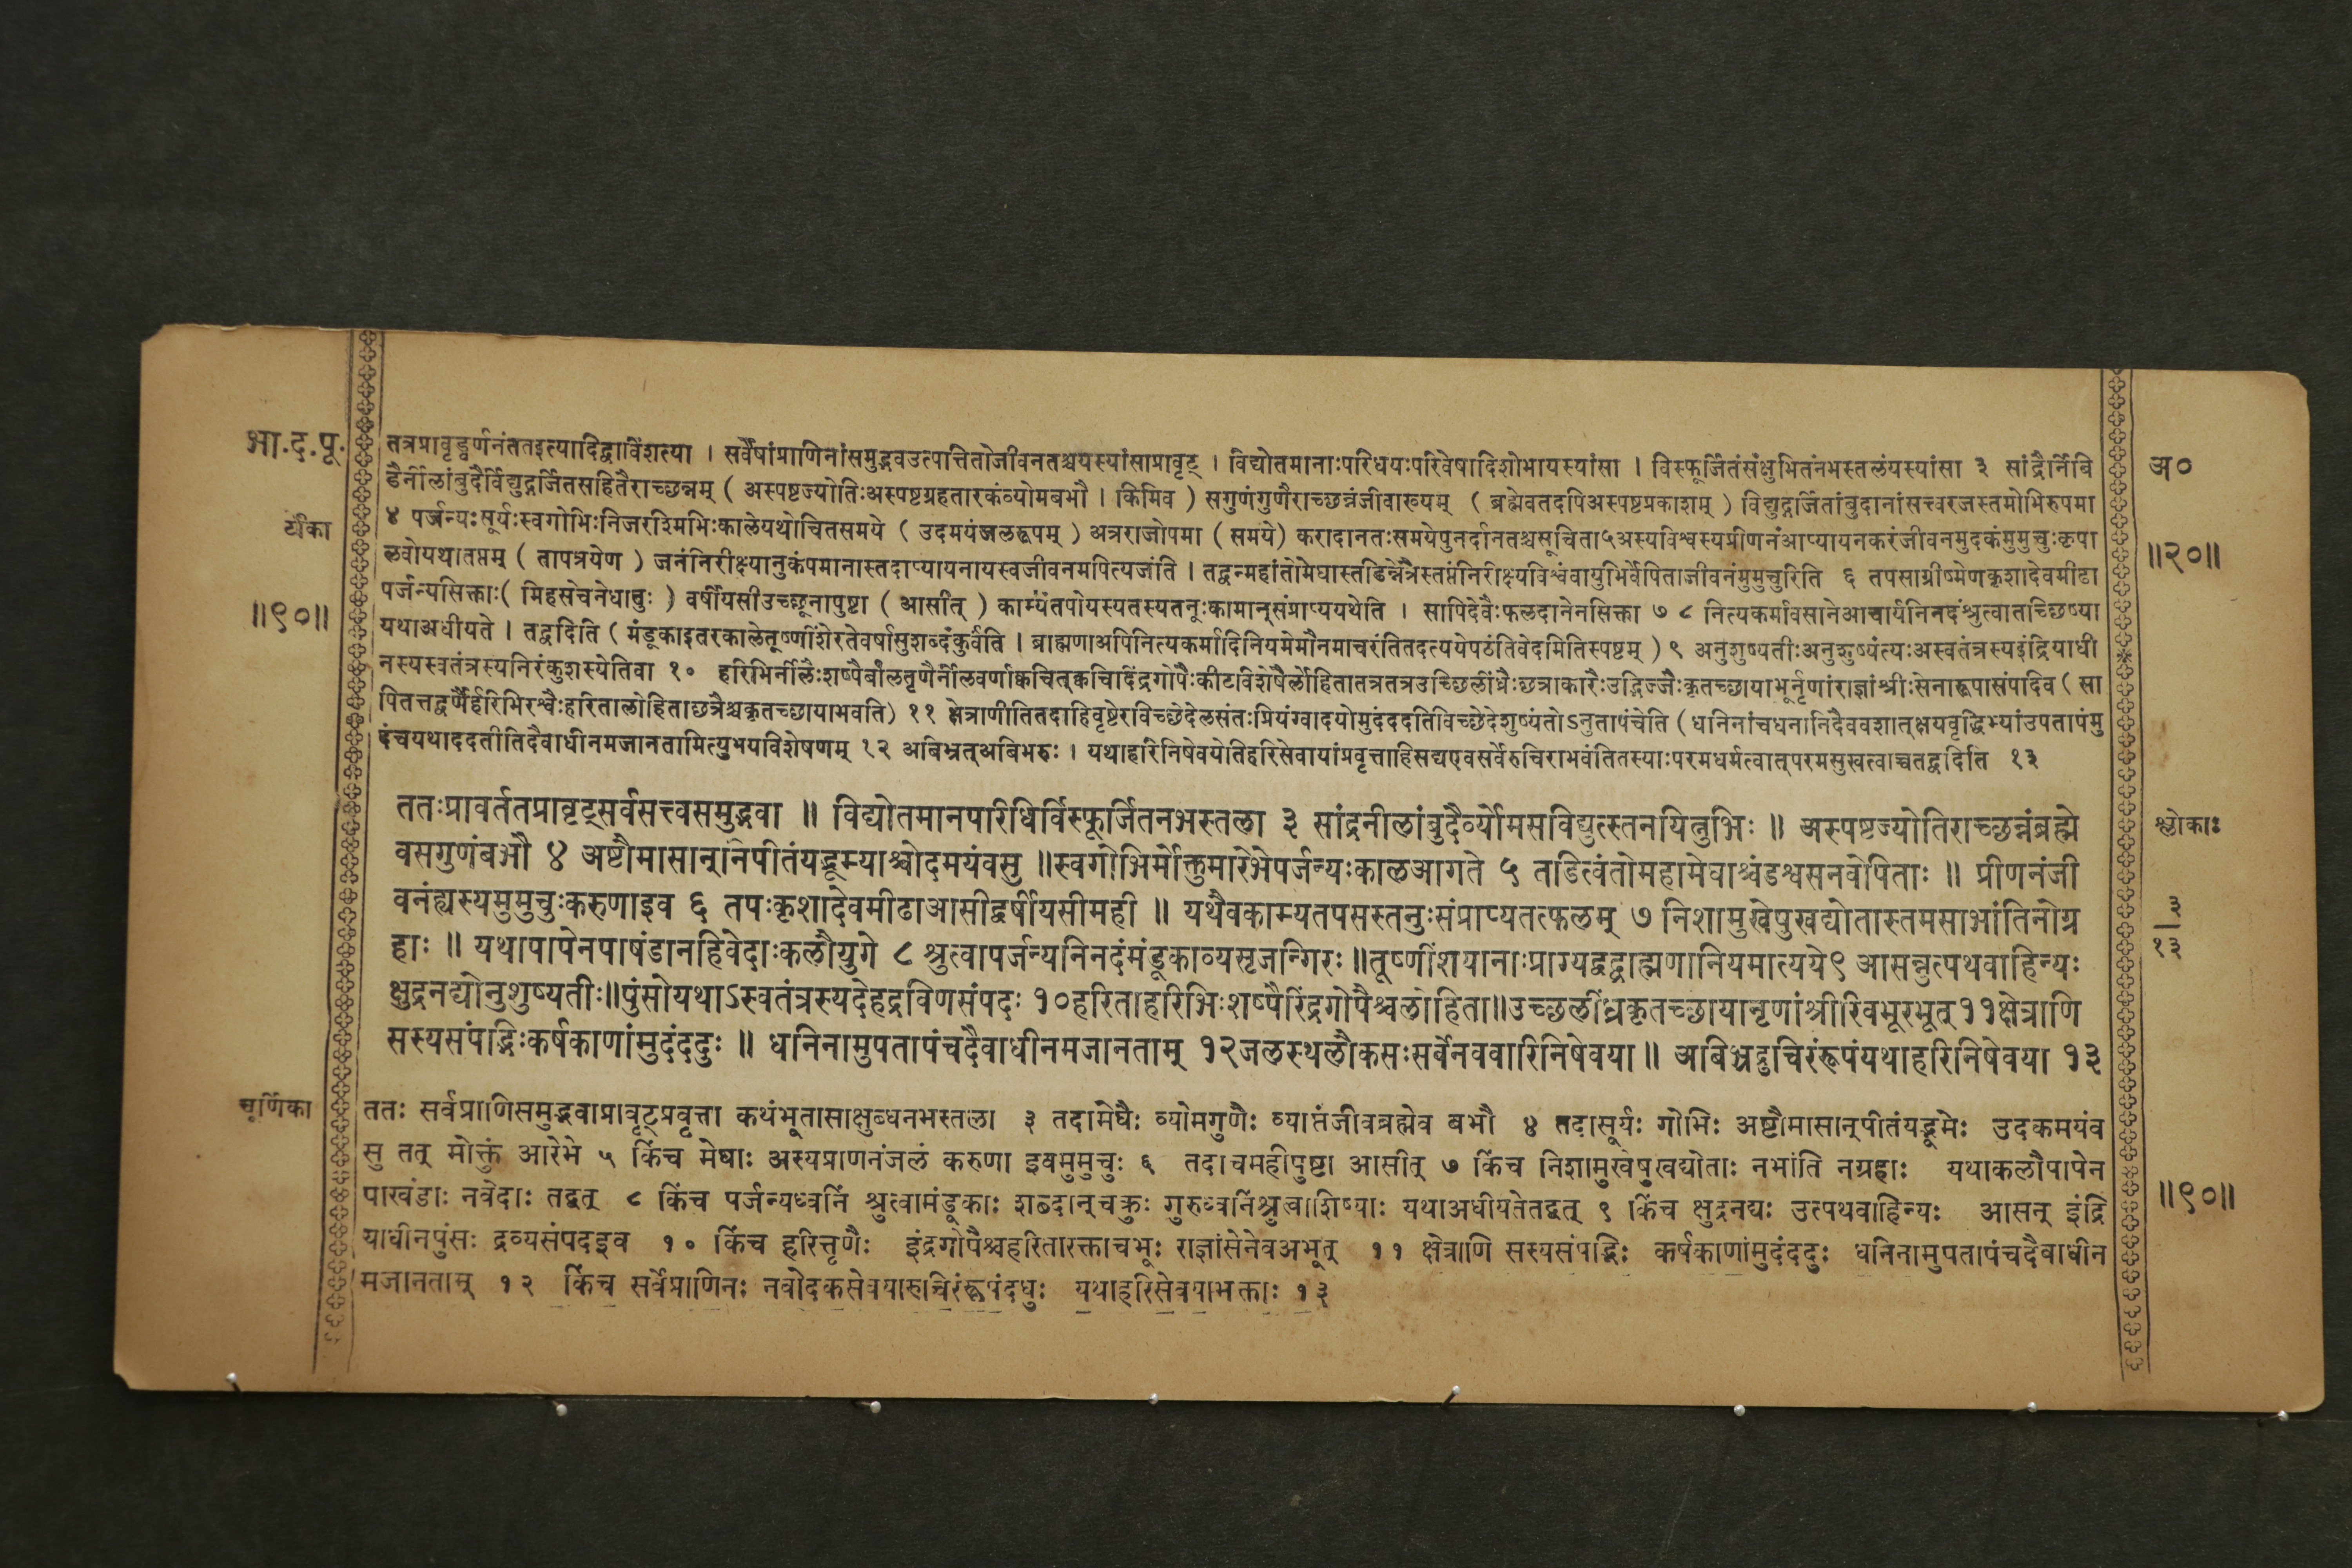 भा.द.पू.
तत्रप्रावृड्वर्णनंततइत्यादिद्वाविंशत्या । सर्वेषांप्राणिनांसमुद्भवउत्पत्तितोजीवनतश्चयस्यांसाप्रावृट् । विद्योतमानाःपरिधयःपरिवेषादिशोभायस्यांसा । विस्फूर्जितंसंक्षुभितंनभस्तलंयस्यांसा ३ सांद्रैर्निबि
डैर्नीलांबुदैर्विद्युद्गर्जितसहितैराच्छन्नम् ( अस्पष्टज्योतिःअस्पष्टग्रहतारकंव्योमबभौ । किमिव ) सगुणंगुणैराच्छन्नंजीवाख्यम् ( ब्रह्मेवतदपिअस्पष्टप्रकाशम् ) विद्युद्गर्जितांबुदानांसत्त्वरजस्तमोभिरुपमा
४ पर्जन्यःसूर्यःस्वगोभिःनिजरश्मिभिःकालेयथोचितसमये ( उदमयंजलरूपम् ) अत्रराजोपमा ( समये) करादानतःसमयेपुनर्दानतश्चसूचिता५अस्यविश्वस्यप्रीणनंआप्यायनकरंजीवनमुदकंमुमुचुःकृपा
लवोयथातप्तम् ( तापत्रयेण ) जनंनिरीक्ष्यानुकंपमानास्तदाप्यायनायस्वजीवनमपित्यजंति । तद्वन्महांतोमेघास्तडिन्नेत्रैस्तप्तंनिरीक्ष्यविश्वंवायुभिर्वेपिताजीवनंमुमुचुरिति ६ तपसाग्रीष्मेणकृशादेवमीढा
पर्जन्यसिक्ताः( मिहसेचनेधातुः ) वर्षीयसीउच्छूनापुष्टा ( आसीत् ) काम्यंतपोयस्यतस्यतनुःकामान्संप्राप्ययथेति । सापिदेवैःफलदानेनसिक्ता ७ ८ नित्यकर्मावसानेआचार्यनिनदंश्रुत्वातच्छिष्या
यथाअधीयते । तद्वदिति ( मंडूकाइतरकालेतूष्णींशेरतेवर्षासुशब्दंकुर्वंति । ब्राह्मणाअपिनित्यकर्मादिनियमेमौनमाचरंतितदत्ययेपठंतिवेदमितिस्पष्टम् ) ९ अनुशुष्यतीःअनुशुष्यंत्यःअस्वतंत्रस्यइंद्रियाधी
नस्यस्वतंत्रस्यनिरंकुशस्येतिवा १० हरिभिर्नीलैःशष्पैर्बालतृणैर्नीलवर्णाक्वचित्क्वचिदिंद्रगोपैःकीटविशेषैर्लोहितातत्रतत्रउच्छिलींध्रैःछत्राकारैःउद्भिज्जैःकृतच्छायाभूर्नृणांराज्ञांश्रीःसेनारूपासंपादिव ( सा
पितत्तद्वर्णैर्हरिभिरश्वैःहरितालोहिताछत्रैश्चकृतच्छायाभवति) ११ क्षेत्राणीतितदाहिवृष्टेरविच्छेदेलसंतःप्रियंग्वादयोमुदंददतिविच्छेदेशुष्यंतोऽनुतापंचेति ( धनिनांचधनानिदैववशात्क्षयवृद्धिभ्यांउपतापंमु
दंचयथाददतीतिदैवाधीनमजानतामित्युभयविशेषणम् १२ अबिभ्रत्अबिभरुः । यथाहरिनिषेवयेतिहरिसेवायांप्रवृत्ताहिसद्यएवसर्वेरुचिराभवंतितस्याःपरमधर्मत्वात्परमसुखत्वाच्चतद्वदिति १३
टीका
॥९०॥
अ०
॥२०॥
ततःप्रावर्ततप्रावृट्सर्वसत्त्वसमुद्भवा ॥ विद्योतमानपारिधिर्विस्फूर्जितनभस्तला ३ सांद्रनीलांबुदैर्व्योमसविद्युत्स्तनयित्नुभिः ॥ अस्पष्टज्योतिराच्छन्नंब्रह्मे
वसगुणंबभौ ४ अष्टौमासान्निपीतंयद्भूम्याश्चोदमयंवसु ॥स्वगोभिर्मोक्तुमारेभेपर्जन्यःकालआगते ५ तडित्वंतोमहामेघाश्चंडश्वसनवेपिताः ॥ प्रीणनंजी
वनंह्यस्यमुमुचुःकरुणाइव ६ तपःकृशादेवमीढाआसीद्वर्षीयसीमही ॥ यथैवकाम्यतपसस्तनुःसंप्राप्यतत्फलम् ७ निशामुखेषुखद्योतास्तमसाभांतिनोग्र
हाः ॥ यथापापेनपाषंडानहिवेदाःकलौयुगे ८ श्रुत्वापर्जन्यनिनदंमंडूकाव्यसृजन्गिरः॥तूष्णींशयानाःप्राग्यद्वद्ब्राह्मणानियमात्यये९ आसन्नुत्पथवाहिन्यः
क्षुद्रनद्योनुशुष्यतीः॥पुंसोयथाऽस्वतंत्रस्यदेहद्रविणसंपदः १०हरिताहरिभिःशष्पैरिंद्रगोपैश्चलोहिता॥उच्छिलींध्रकृतच्छायानृणांश्रीरिवभूरभूत्११क्षेत्राणि
सस्यसंपद्भिःकर्षकाणांमुदंददुः ॥ धनिनामुपतापंचदैवाधीनमजानताम् १२जलस्थलौकसःसर्वेनववारिनिषेवया॥ अबिभ्रद्रुचिरंरूपंयथाहरिनिषेवया १३
श्लोकाः
३
१३
चूर्णिका
ततः सर्वप्राणिसमुद्भवाप्रावृट्प्रवृत्ता कथंभूतासाक्षुब्धनभस्तला ३ तदामेघैः व्योमगुणैः व्याप्तंजीवब्रह्मेव बभौ ४ तदासूर्यः गोभिः अष्टौमासान्पीतंयद्भूमेः उदकमयंव
सु तत् मोक्तुं आरेभे ५ किंच मेघाः अस्यप्राणनंजलं करुणा इवमुमुचुः ६ तदाचमहीपुष्टा आसीत् ७ किंच निशामुखेषुखद्योताः नभांति नग्रहाः यथाकलौपापेन
पाखंडाः नवेदाः तद्वत् ८ किंच पर्जन्यध्वनिं श्रुत्वामंडूकाः शब्दान्चक्रुः गुरुध्वनिंश्रुत्वाशिष्याः यथाअधीयतेतद्वत् ९ किंच क्षुद्रनद्यः उत्पथवाहिन्यः आसन् इंद्रि
याधीनपुंसः द्रव्यसंपदइव १० किंच हरित्तृणैः इंद्रगोपैश्चहरितारक्ताचभूः राज्ञांसेनेवअभूत् ११ क्षेत्राणि सस्यसंपद्भिः कर्षकाणांमुदंददुः धनिनामुपतापंचदैवाधीन
मजानताम् १२ किंच सर्वेप्राणिनः नवोदकसेवयारुचिरंरूपंदधुः यथाहरिसेवयाभक्ताः १३
॥९०॥